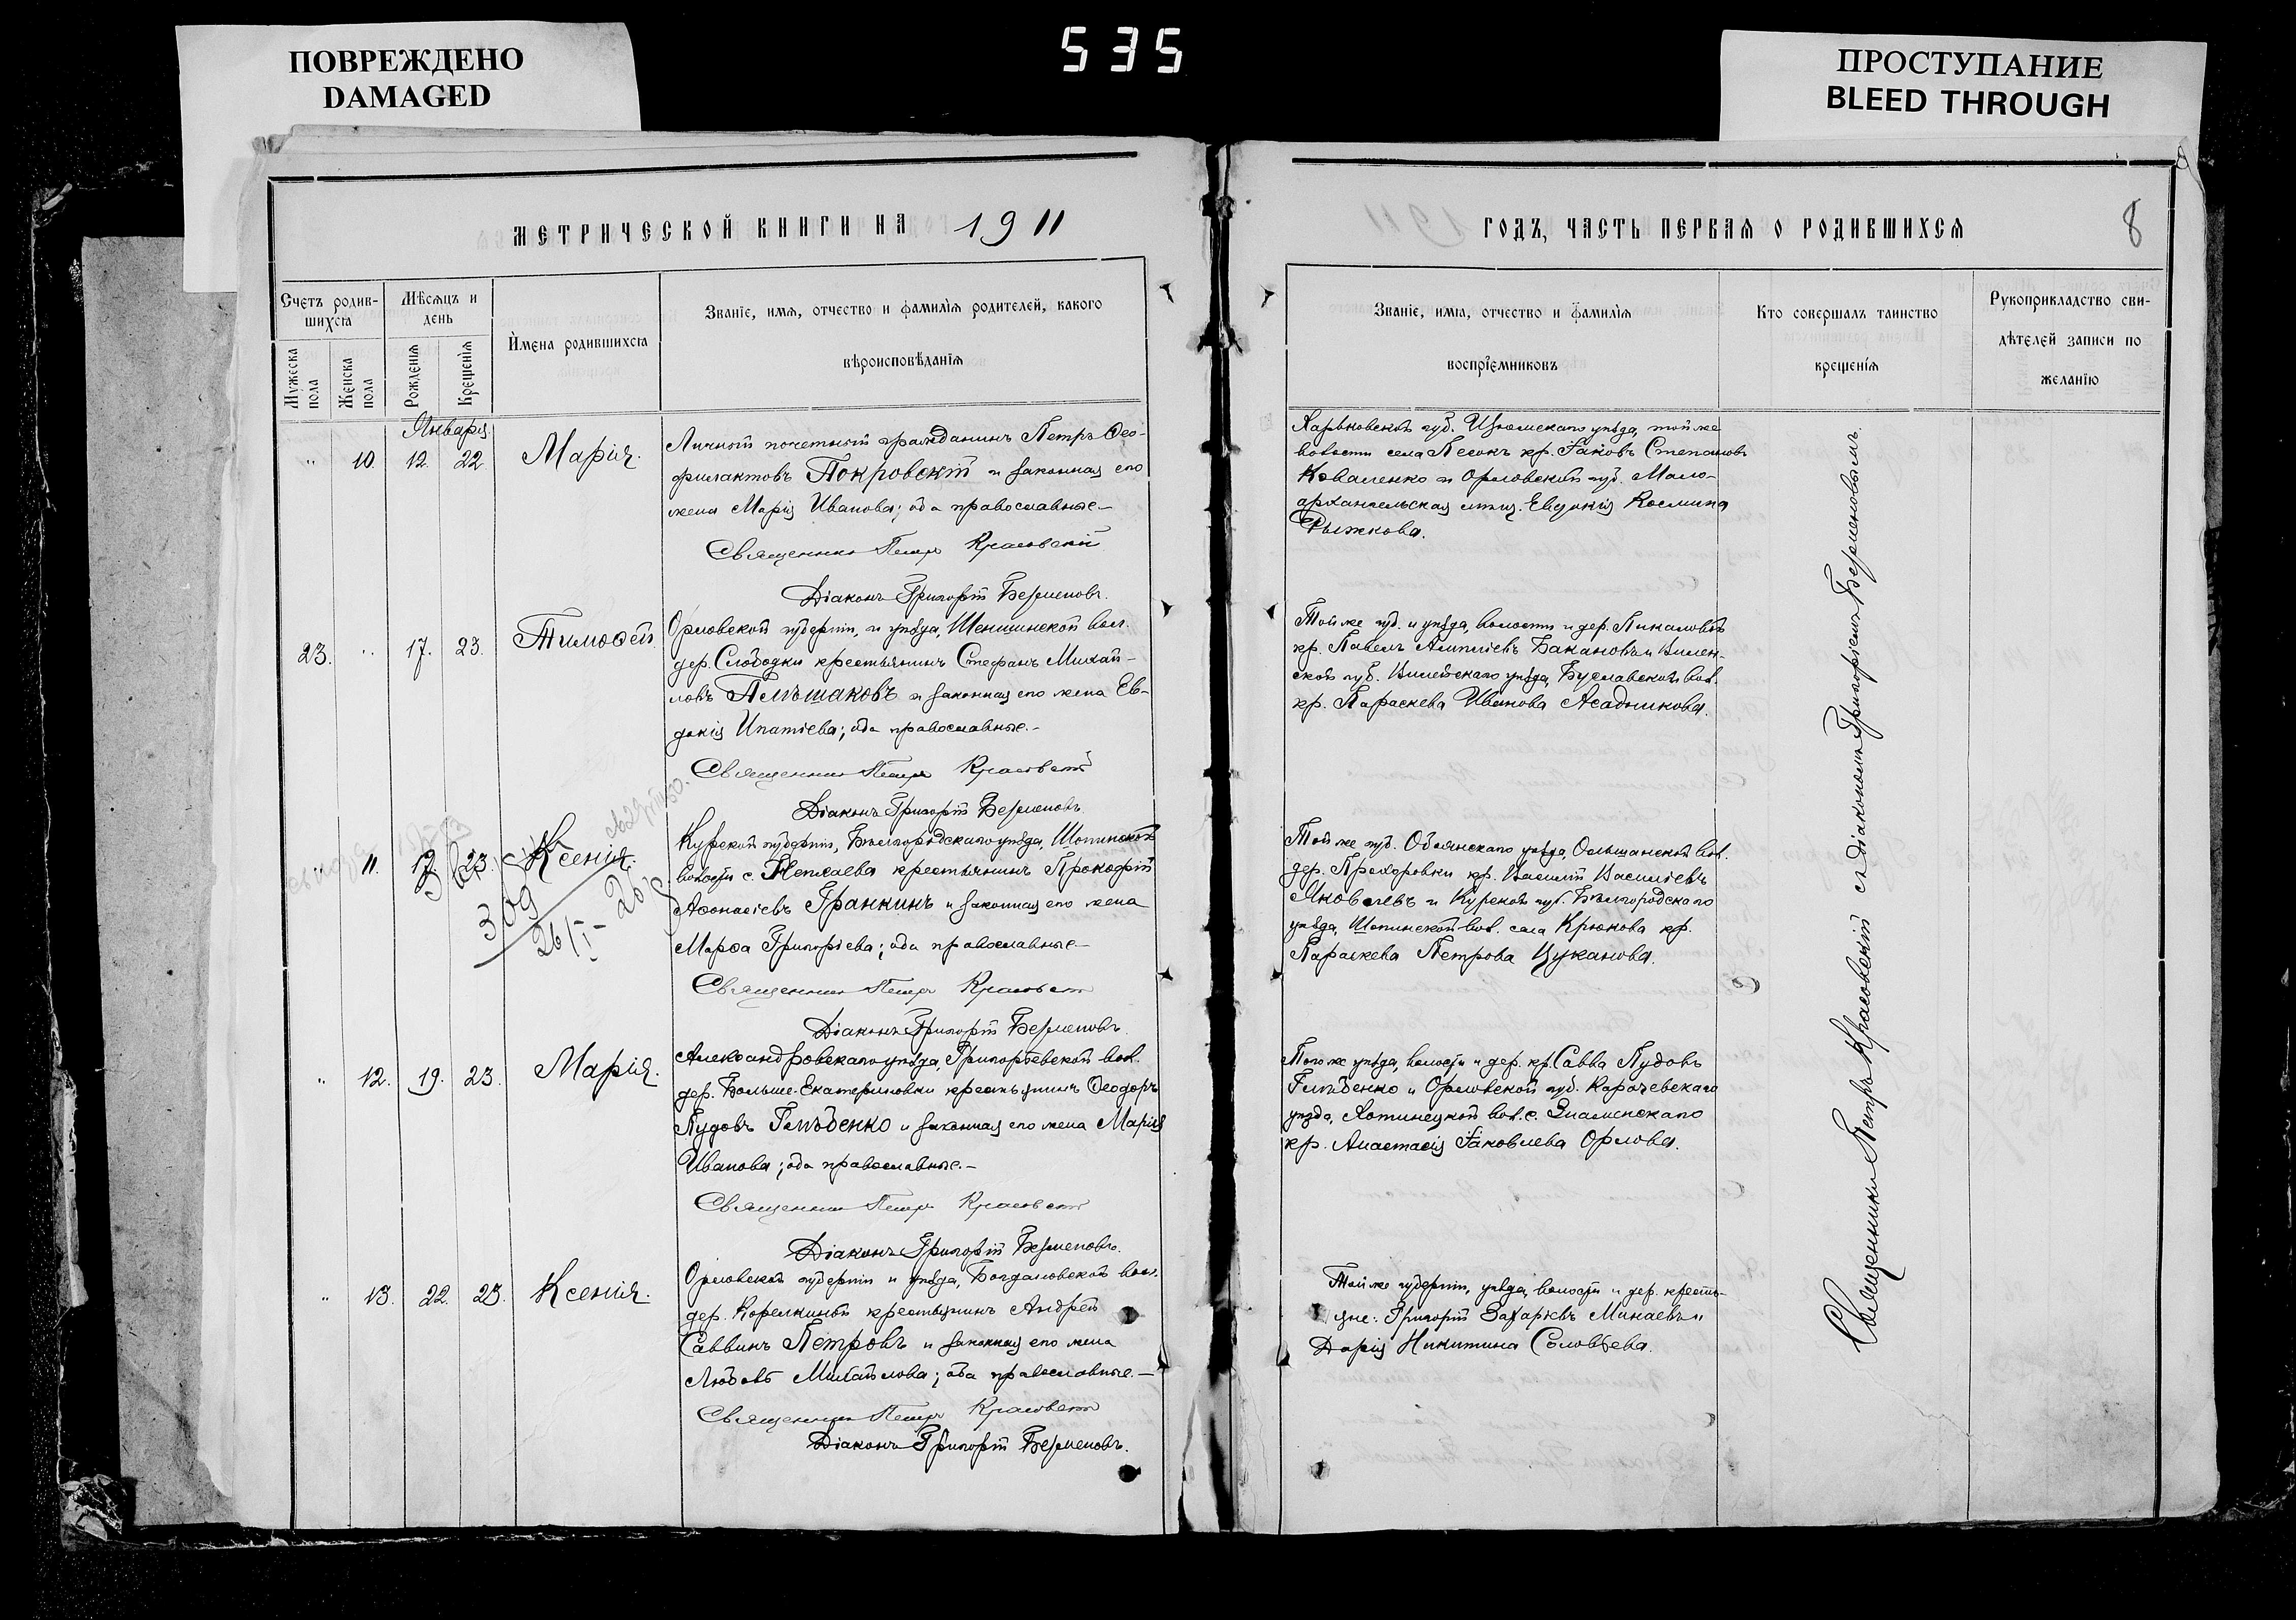 ПОВРЕЖДЕНО
DAMAGED
535
ПРОСТУПАНИЕ
BLEED THROUGH
МЕТРИЧЕСКОЙ КНИГИ НА 1911
ГОДЪ, ЧАСТЬ ПЕРВАЯ О РОДИВШИХСЯ
8
Счетъ родив-
шихся
Мужеска пола
Женска пола
Мѣсяцъ и
день
Рожденія
Крещенія
Имена родившихся
Званіе, имя, отчество и фамилія родителей, какого
вѣроисповѣданія
Званіе, имя, отчество и фамилія
воспріемниковъ
Кто совершалъ таинство
крещенія
Рукоприкладство сви-
дѣтелей записи по
желанію
Января
" 10. 12. 22. Марія.
Личный почетный гражданинъ Петръ Ѳео-
филактовъ Покровскій и законная его
жена Марія Иванова; оба православные.-
Священникъ Петръ Красовскій
Діаконъ Григорій Безменовъ.
Харьковской губ. Изюмскаго уѣзда, той же
волости села Песокъ кр. Іаковъ Степановъ
Коваленко и Орловской губ. Мало-
архангельская мѣщ. Евдокія Космина
Рыжкова.
23. " 17. 23. Тимоѳей.
Орловской губерніи, и уѣзда, Шеншинской вол.
дер. Слободки крестьянинъ Стефанъ Михай-
ловъ Плѣшаковъ и законная его жена Ев-
докія Ипатіева; оба православные.-
Священникъ Петръ Красовскій
Діаконъ Григорій Безменовъ.
Той же губ. и уѣзда, волости и дер. Пикаловой
кр. Павелъ Алипіевъ Бакановъ и Вилен-
ской губ. Вилейскаго уѣзда, Буславской вол.
кр. Параскева Иванова Асадчикова.
" 11. 23. Ксенія.
309
26/I-
Курской губерніи, Бѣлгородскаго уѣзда, Шопинской
волости с. Непхаева крестьянинъ Прокофій
Аѳонасіевъ Гранкинъ и законная его жена
Марѳа Григоріева; оба православные.-
Священникъ Петръ Красовскій
Діаконъ Григорій Безменовъ.
Той же губ. Обоянскаго уѣзда, Ольшанской вол.
дер. Прохоровки кр. Василій Василіевъ
Яковлевъ и Курской губ. Бѣлгородскаго
уѣзда, Шопинской вол. села Крюкова кр.
Параскева Петрова Цуканова.
" 12. 19. 23. Марія.
Александровскаго уѣзда, Григорьевской вол.
дер. Больше-Екатериновки крестьянинъ Ѳеодоръ
Пудовъ Глѣбенко и законная его жена Марія
Иванова; оба православные.-
Священникъ Петръ Красовскій
Діаконъ Григорій Безменовъ.
Того же уѣзда, волости и дер. кр. Савва Пудовъ
Глѣбенко и Орловской губ. Карачевскаго
уѣзда, Хотинецкой вол. с. Знаменскаго
кр. Анастасія Іаковлева Орлова.
" 13. 22. 23. Ксенія.
Орловской губерніи и уѣзда, Богдановской вол.
дер. Корелкиной крестьянинъ Андрей
Саввинъ Петровъ и законная его жена
Любовь Михайлова; оба православные.-
Священникъ Петръ Красовскій
Діаконъ Григорій Безменовъ.
Той же губерніи, уѣзда, волости и дер. кресть-
яне: Григорій Захаріевъ Минаевъ и
Дарія Никитина Соловьева.
Священникъ Петръ Красовскій съ діакономъ Григоріемъ Безменовымъ.